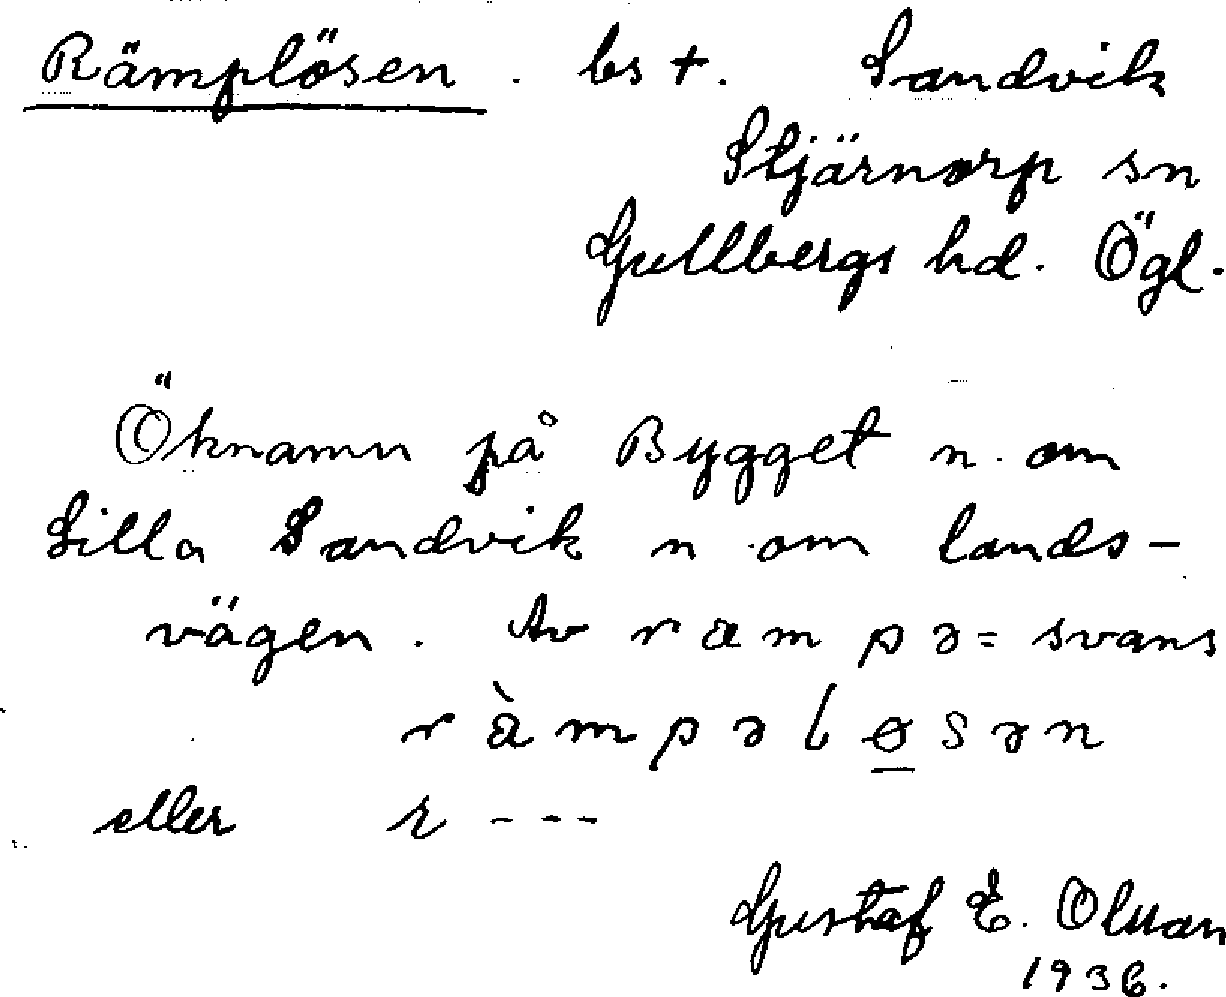 Rämplösen. bs +. Sandvik
Stjärnorp sn
Gullbergs hd. Ögl.
Öknamn på Bygget n. om
Lilla Sandvik n. om lands-
vägen. Av ræmpə = svans
ræ̀mpəlø̲sən
eller ɽ ---
Gustaf E. Olsson
1936.